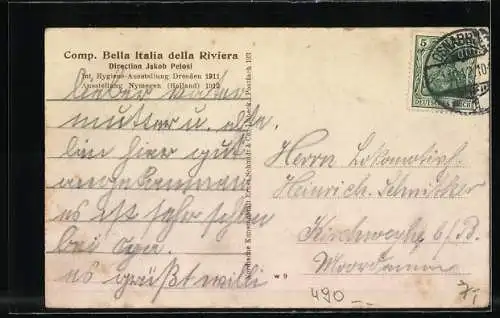 Comp. Bella Italia della Riviera
Direction Jakob Pelosi
Int. Hygiene-Ausstellung Dresden 1911
Ausstellung Nymegen (Holland) 1912
lieber vater
mutter u.
bin hier gut
angekommen
es ist sehr schön
bei opa.
es grüßt willi
Herrn Lokomotivf.
Heinrich Schnittker
Kirchweyhe b/B.
5
DEUTSCHES REICH
OSNABRÜCK
Postfach 103
W 9
490